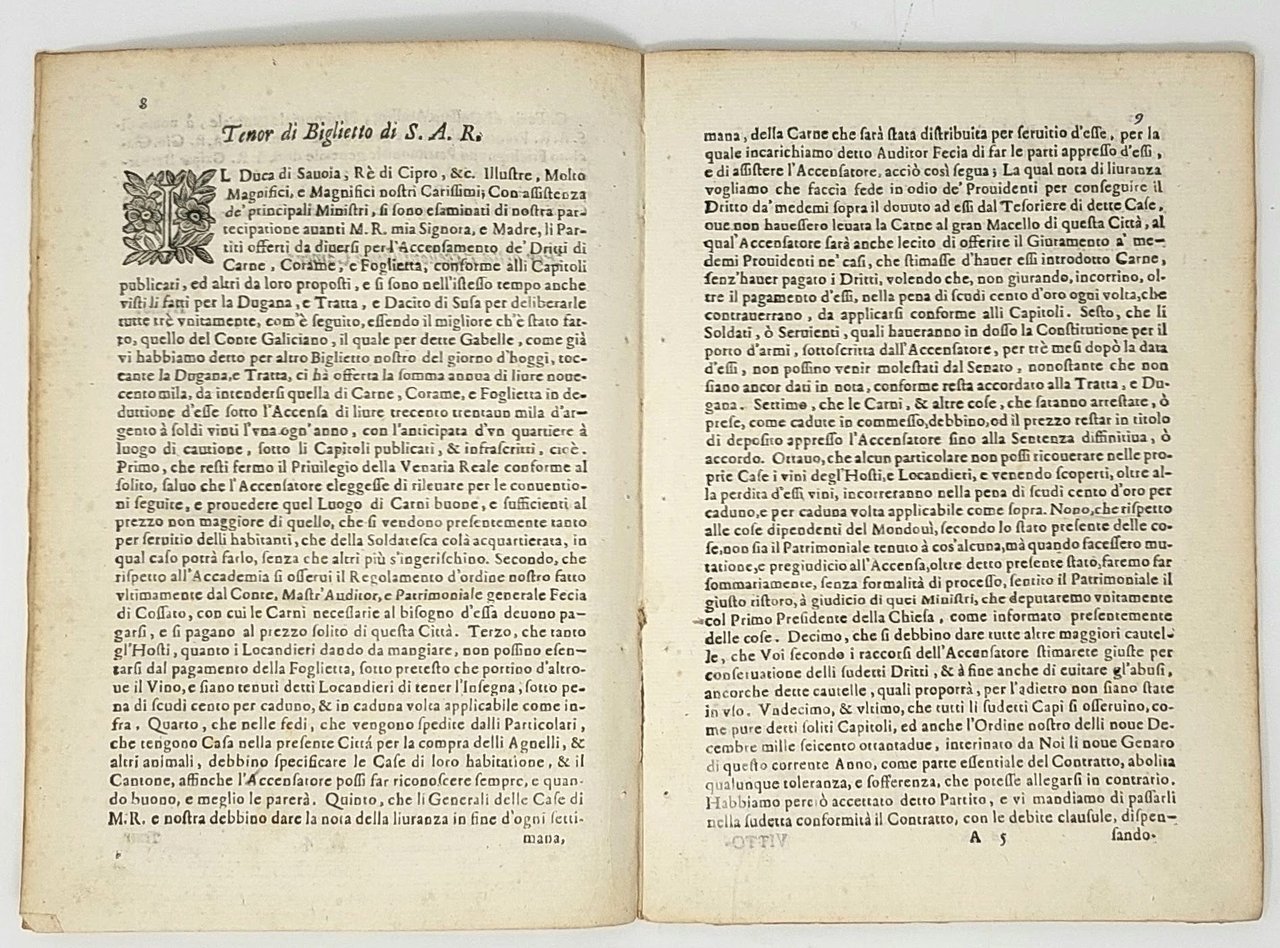 8
Tenor di Biglietto di S. A. R.
IL Duca di Sauoia, Rè di Cipro, &c. Illustre, Molto
Magnifici, e Magnifici nostri Carissimi; Con assistenza
de' principali Ministri, si sono esaminati di nostra par-
tecipatione auanti M. R. mia Signora, e Madre, li Par-
titi offerti da diuersi per l'Accensamento de' Dritti di
Carne, Corame, e Foglietta, conforme alli Capitoli
publicati, ed altri da loro proposti, e si sono nell'istesso tempo anche
visti li fatti per la Dugana, e Tratta, e Dacito di Susa per deliberarle
tutte trè vnitamente, com'è seguito, essendo il migliore ch'è stato fat-
to, quello del Conte Galiciano, il quale per dette Gabelle, come già
vi habbiamo detto per altro Biglietto nostro del giorno d'hoggi, toc-
cante la Dugana,e Tratta, ci hà offerta la somma annua di liure noue-
cento mila, da intendersi quella di Carne, Corame, e Foglietta in de-
duttione d'esse sotto l'Accensa di liure trecento trentaun mila d'ar-
gento à soldi vinti l'vna ogn'anno, con l'anticipata d'vn quartiere à
luogo di cautione, sotto li Capitoli publicati, & infrascritti, cioè.
Primo, che resti fermo il Priuilegio della Venaria Reale conforme al
solito, saluo che l'Accensatore eleggesse di rileuare per le conuentio-
ni seguite, e prouedere quel Luogo di Carni buone, e sufficienti al
prezzo non maggiore di quello, che si vendono presentemente tanto
per seruitio delli habitanti, che della Soldatesca colà acquartierata, in
qual caso potrà farlo, senza che altri più s'ingerischino. Secondo, che
rispetto all'Accademia si osserui il Regolamento d'ordine nostro fatto
vltimamente dal Conte, Mastr'Auditor, e Patrimoniale generale Fecia
di Cossato, con cui le Carni necessarie al bisogno d'essa deuono pa-
garsi, e si pagano al prezzo solito di questa Città. Terzo, che tanto
gl'Hosti, quanto i Locandieri dando da mangiare, non possino esen-
tarsi dal pagamento della Foglietta, sotto pretesto che portino d'altro-
ue il Vino, e siano tenuti detti Locandieri di tener l'Insegna, sotto pe-
na di scudi cento per caduno, & in caduna volta applicabile come in-
fra. Quarto, che nelle fedi, che vengono spedite dalli Particolari,
che tengono Casa nella presente Cittá per la compra delli Agnelli, &
altri animali, debbino specificare le Case di loro habitatione, & il
Cantone, affinche l'Accensatore possi far riconoscere sempre, e quan-
do buono, e meglio le parerà. Quinto, che li Generali delle Case di
M.R. e nostra debbino dare la nota della liuranza in fine d'ogni setti-
mana,
9
mana, della Carne che sarà stata distribuita per seruitio d'esse, per la
quale incarichiamo detto Auditor Fecia di far le parti appresso d'essi,
e di assistere l'Accensatore, acciò così segua; La qual nota di liuranza
vogliamo che faccia fede in odio de' Prouidenti per conseguire il
Dritto da' medemi sopra il douuto ad essi dal Tesoriere di dette Case,
oue non hauessero leuata la Carne al gran Macello di questa Città, al
qual'Accensatore sarà anche lecito di offerire il Giuramento a' me-
demi Prouidenti ne' casi, che stimasse d'hauer essi introdotto Carne,
senz'hauer pagato i Dritti, volendo che, non giurando, incorrino, ol-
tre il pagamento d'essi, nella pena di scudi cento d'oro ogni volta,che
contrauerrano, da applicarsi conforme alli Capitoli. Sesto, che li
Soldati, ò Seruienti, quali haueranno in dosso la Constitutione per il
porto d'armi, sottoscritta dall'Accensatore, per trè mesi dopò la data
d'essi, non possino venir molestati dal Senato, nonostante che non
siano ancor dati in nota, conforme resta accordato alla Tratta, e Du-
gana. Settimo, che le Carni, & altre cose, che saranno arrestate, ò
prese, come cadute in commesso,debbino,od il prezzo restar in titolo
di deposito appresso l'Accensatore sino alla Sentenza diffinitiua, ò
accordo. Ottauo, che alcun particolare non possi ricouerare nelle pro-
prie Case i vini degl'Hosti,e Locandieri, e venendo scoperti, oltre al-
la perdita d'essi vini, incorreranno nella pena di scudi cento d'oro per
caduno,e per caduna volta applicabile come sopra. Nono,che rispetto
alle cose dipendenti del Mondouì, secondo lo stato presente delle co-
se,non sia il Patrimoniale tenuto à cos'alcuna,mà quando facessero mu-
tatione,e pregiudicio all'Accensa,oltre detto presente stato,faremo far
sommariamente, senza formalità di processo, sentito il Patrimoniale il
giusto ristoro, à giudicio di quei Ministri, che deputaremo vnitamente
col Primo Presidente della Chiesa, come informato presentemente
delle cose. Decimo, che si debbino dare tutte altre maggiori cautel-
le, che Voi secondo i raccorsi dell'Accensatore stimarete giuste per
conseruatione delli sudetti Dritti, & à fine anche di euitare gl'abusi,
ancorche dette cautelle, quali proporrà, per l'adietro non siano state
in vso. Vndecimo, & vltimo, che tutti li sudetti Capi si osseruino, co-
me pure detti soliti Capitoli, ed anche l'Ordine nostro delli noue De-
cembre mille seicento ottantadue, interinato da Noi li noue Genaro
di questo corrente Anno, come parte essentiale del Contratto, abolita
qualunque toleranza, e sofferenza, che potesse allegarsi in contrario.
Habbiamo perciò accettato detto Partito, e vi mandiamo di passarli
nella sudetta conformità il Contratto, con le debite clausule, dispen-
A 5 sando-